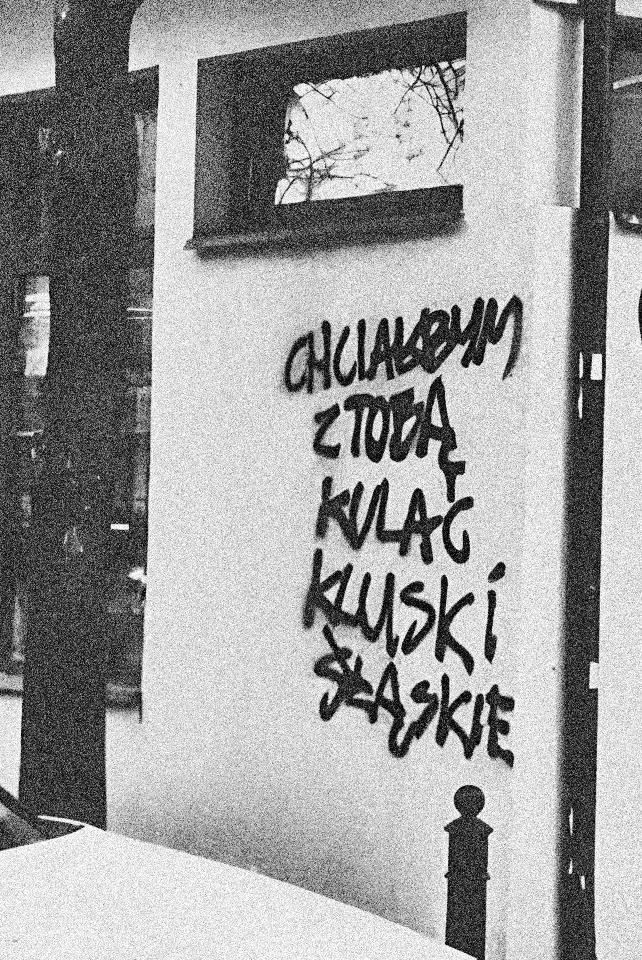 CHCIAŁBYM
Z TOBĄ
KULAĆ
KLUSKI
ŚLĄSKIE